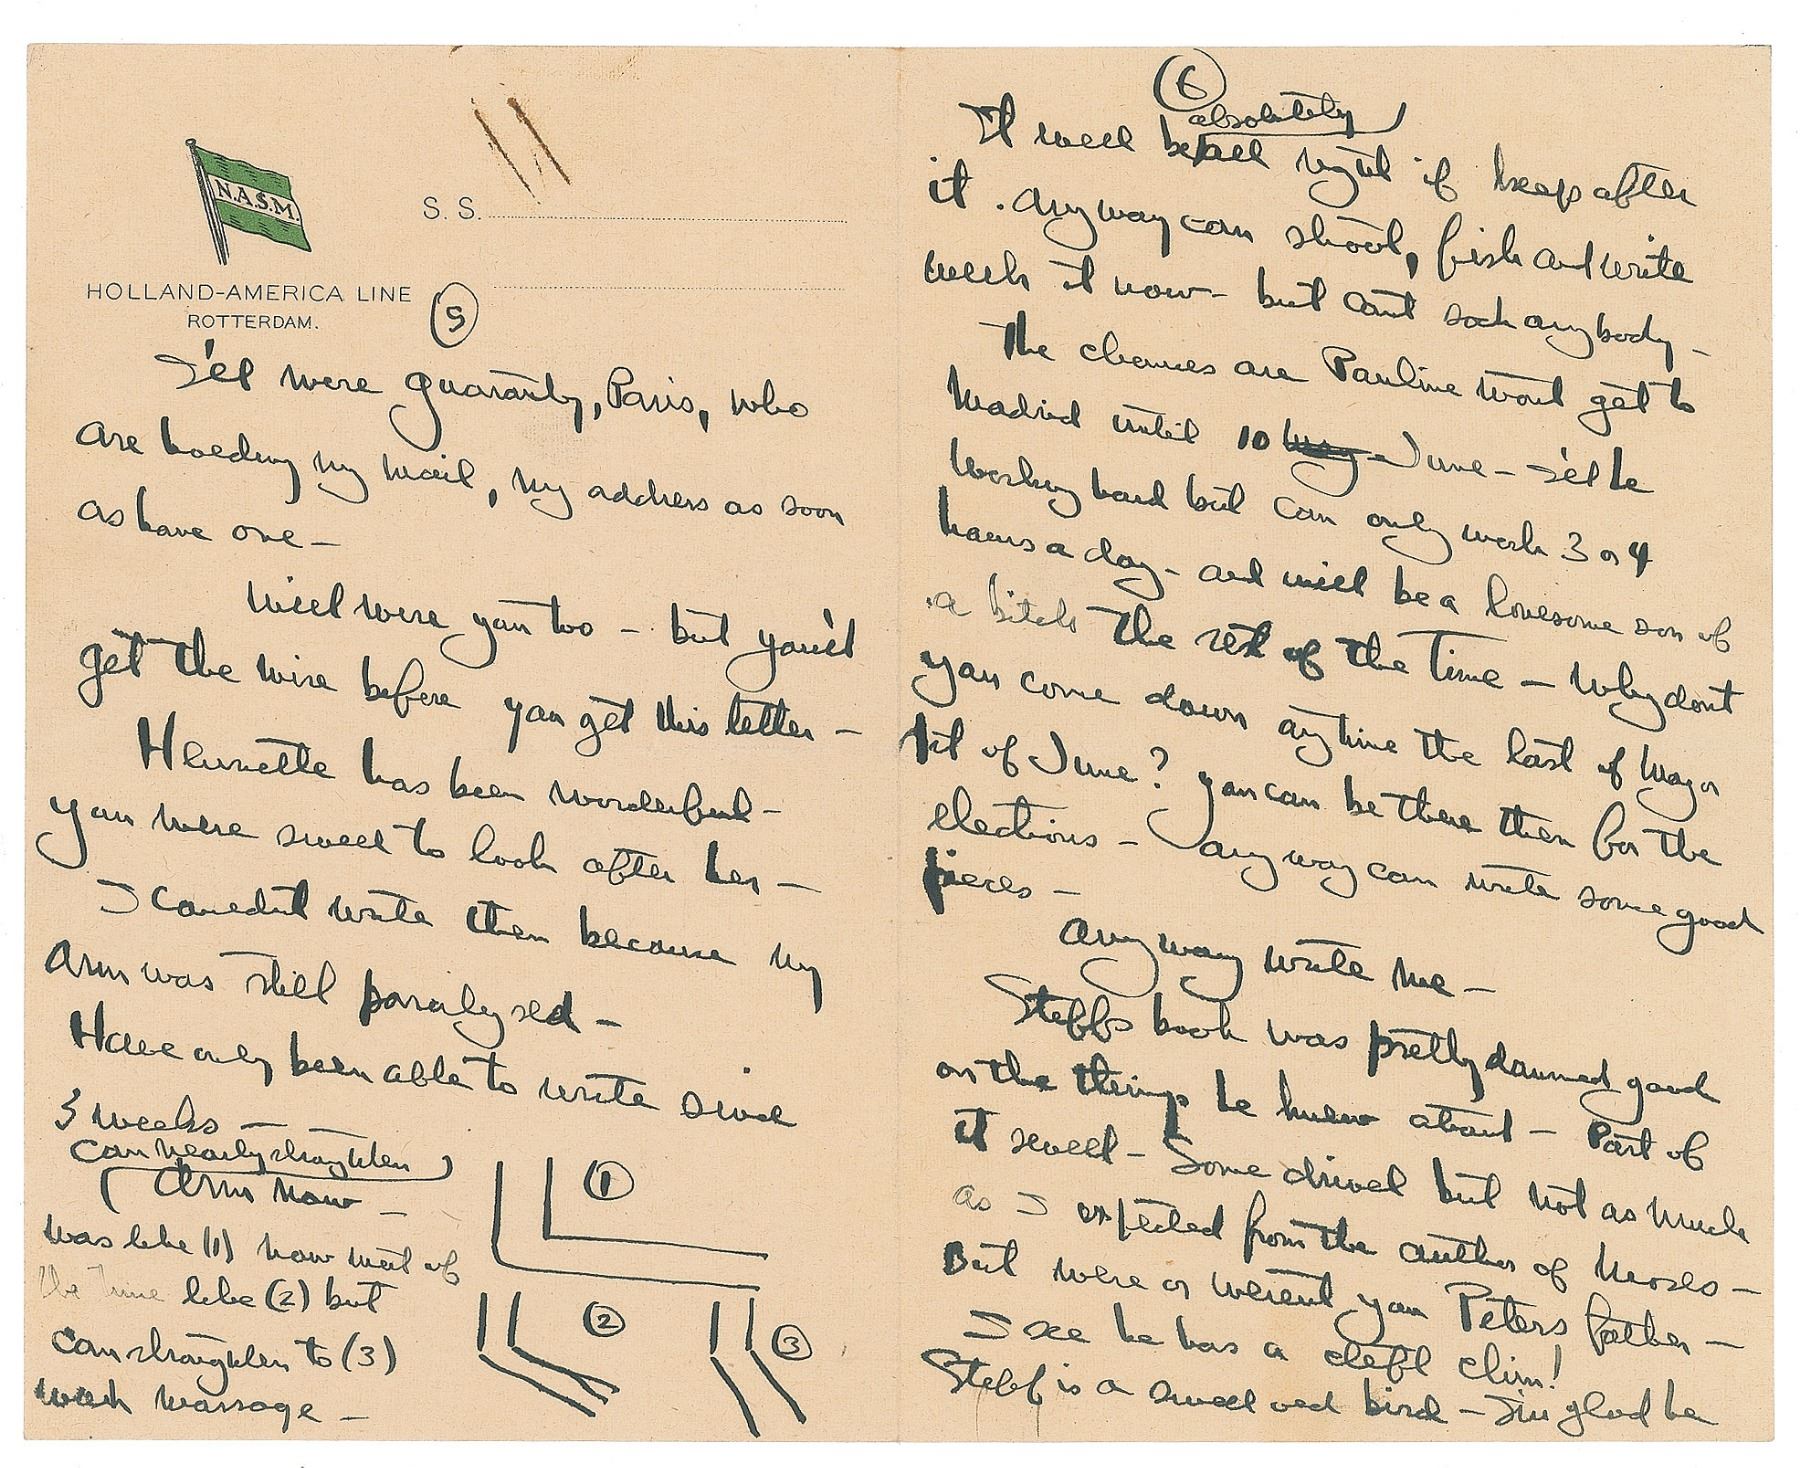 N.A.S.M.
HOLLAND-AMERICA LINE
ROTTERDAM.
S. S.
(5)
I'll wire Guaranty, Paris, who
are holding my mail, my address as soon
as have one —
Will wire you too — but you'll
get the wire before you get this letter —
Henriette has been wonderful —
you were sweet to look after her —
I couldnt write then because my
arm was still paralysed —
Have only been able to write since
3 weeks —
can nearly straighten
(Arm now —
was like (1) now most of
the time like (2) but
can straighten to (3)
with massage —
(1)
(2)
(3)
(6)
absolutely
It will be all right if keep after
it. Anyway can shoot, fish and write
with it now — but cant sock anybody —
The chances are Pauline wont get to
Madrid until 10 May June — I'll be
working hard but can only work 3 or 4
hours a day — and will be a lonesome son of
a bitch the rest of the time — Why dont
you come down anytime the last of May or
1st of June? you can be there then for the
elections — anyway can write some good
pieces —
Anyway write me —
Steffs book was pretty damned good
on the things he knew about — Part of
it swell — Some drivel but not as much
as I expected from the author of Moses —
But were or werent you Peters father —
I see he has a cleft chin!
Steff is a sweet old bird — I'm glad he